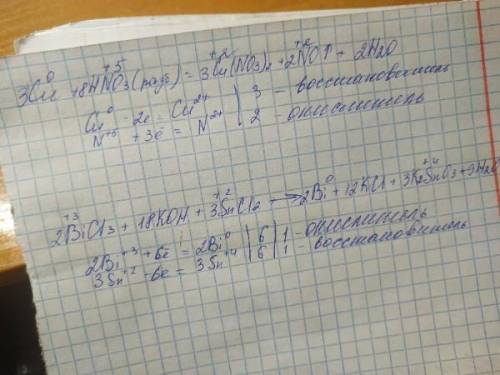 3Cu⁰ + 8HN⁺⁵O3(разб) = 3Cu⁺²(NO3)2 + 2N⁺²O↑ + 2H2O
Cu⁰ - 2e = Cu²⁺ | 3 - восстановитель
N⁺⁵ + 3e = N²⁺ | 2 - окислитель
2Bi⁺³Cl3 + 18KOH + 3Sn⁺²Cl2 → 2Bi⁰ + 12KCl + 3K2Sn⁺⁴O3 + 9H2O
2Bi⁺³ + 6e = 2Bi⁰ | 6 | 1 - окислитель
3Sn⁺² - 6e = 3Sn⁺⁴ | 6 | 1 - восстановитель